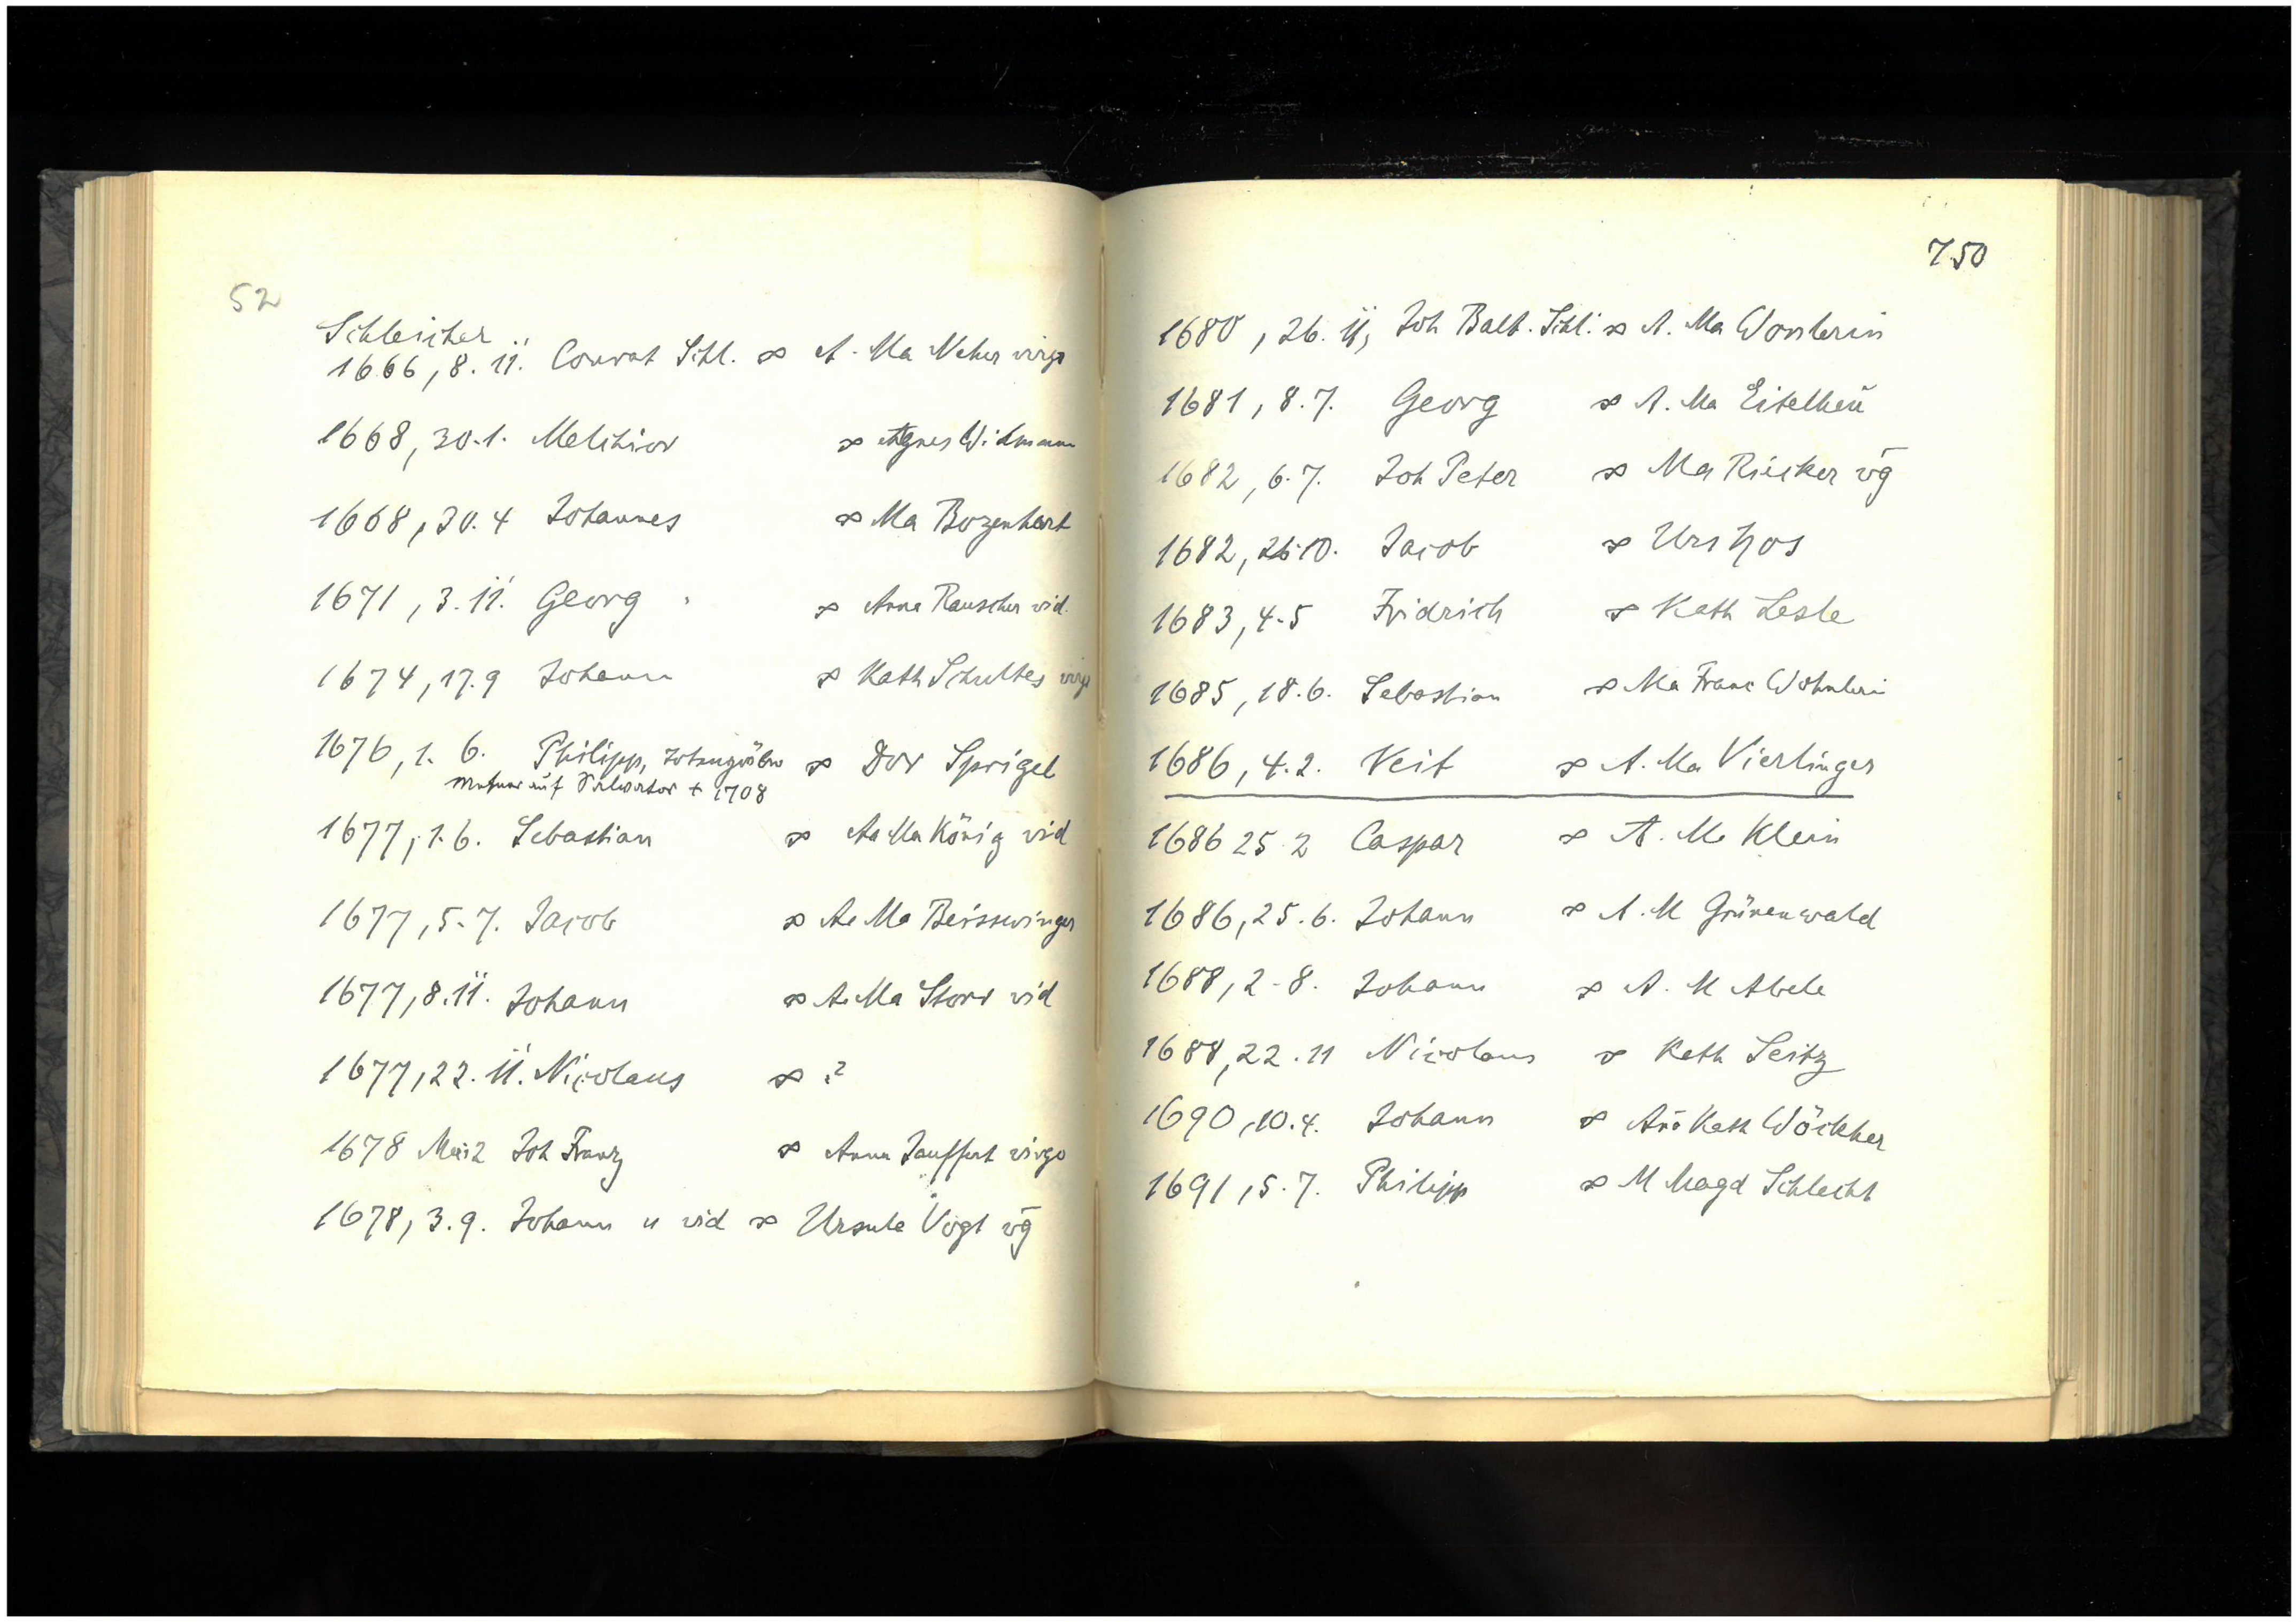 52
Schleicher
1666, 8. 11. Conrat Schl. ∞ A. Ma Neher virgo
1668, 30.1. Melchior ∞ Agnes Widmann
1668, 30.4 Johannes ∞ Ma Bozenhart
1671, 3. 11. Georg ∞ Anna Rauscher vid.
1674, 17.9 Johann ∞ Kath Schultes virgo
1676, 1. 6. Philipp, ∞ Dor Sprigel
auf Salvator + 1708
1677, 1.6. Sebastian ∞ Aa Ma König vid
1677, 5.7. Jacob ∞ Aa Ma Beisswinger
1677, 8.11. Johann ∞ A. Ma Storr vid
1677, 22. 11. Nicolaus ∞ ?
1678 Joh Franz ∞ Anna Jauffert virgo
1678, 3.9. Johann u vid ∞ Ursula Vogt vg
750
1680, 26. 11, Joh Balt. Schl. ∞ A. Ma Wonlerin
1681, 8.7. Georg ∞ A. Ma
1682, 6.7. Joh Peter ∞ Ma Rücker vg
1682, 26.10. Jacob ∞ Urs
1683, 4.5 Fridrich ∞ Kath Lesle
1685, 18.6. Sebastian ∞ Ma Franc Wohnleri
1686, 4.2. Veit ∞ A. Ma Vierlinger
1686 25.2 Caspar ∞ A. M. Klein
1686, 25.6. Johann ∞ A. M Grünenwald
1688, 2.8. Johann ∞ A. M Abele
1688, 22.11 Nicolaus ∞ Kath Seitz
1690, 10.4. Johann ∞ Kath Wöckher
1691, 5.7. Philipp ∞ M Magd Schlecht